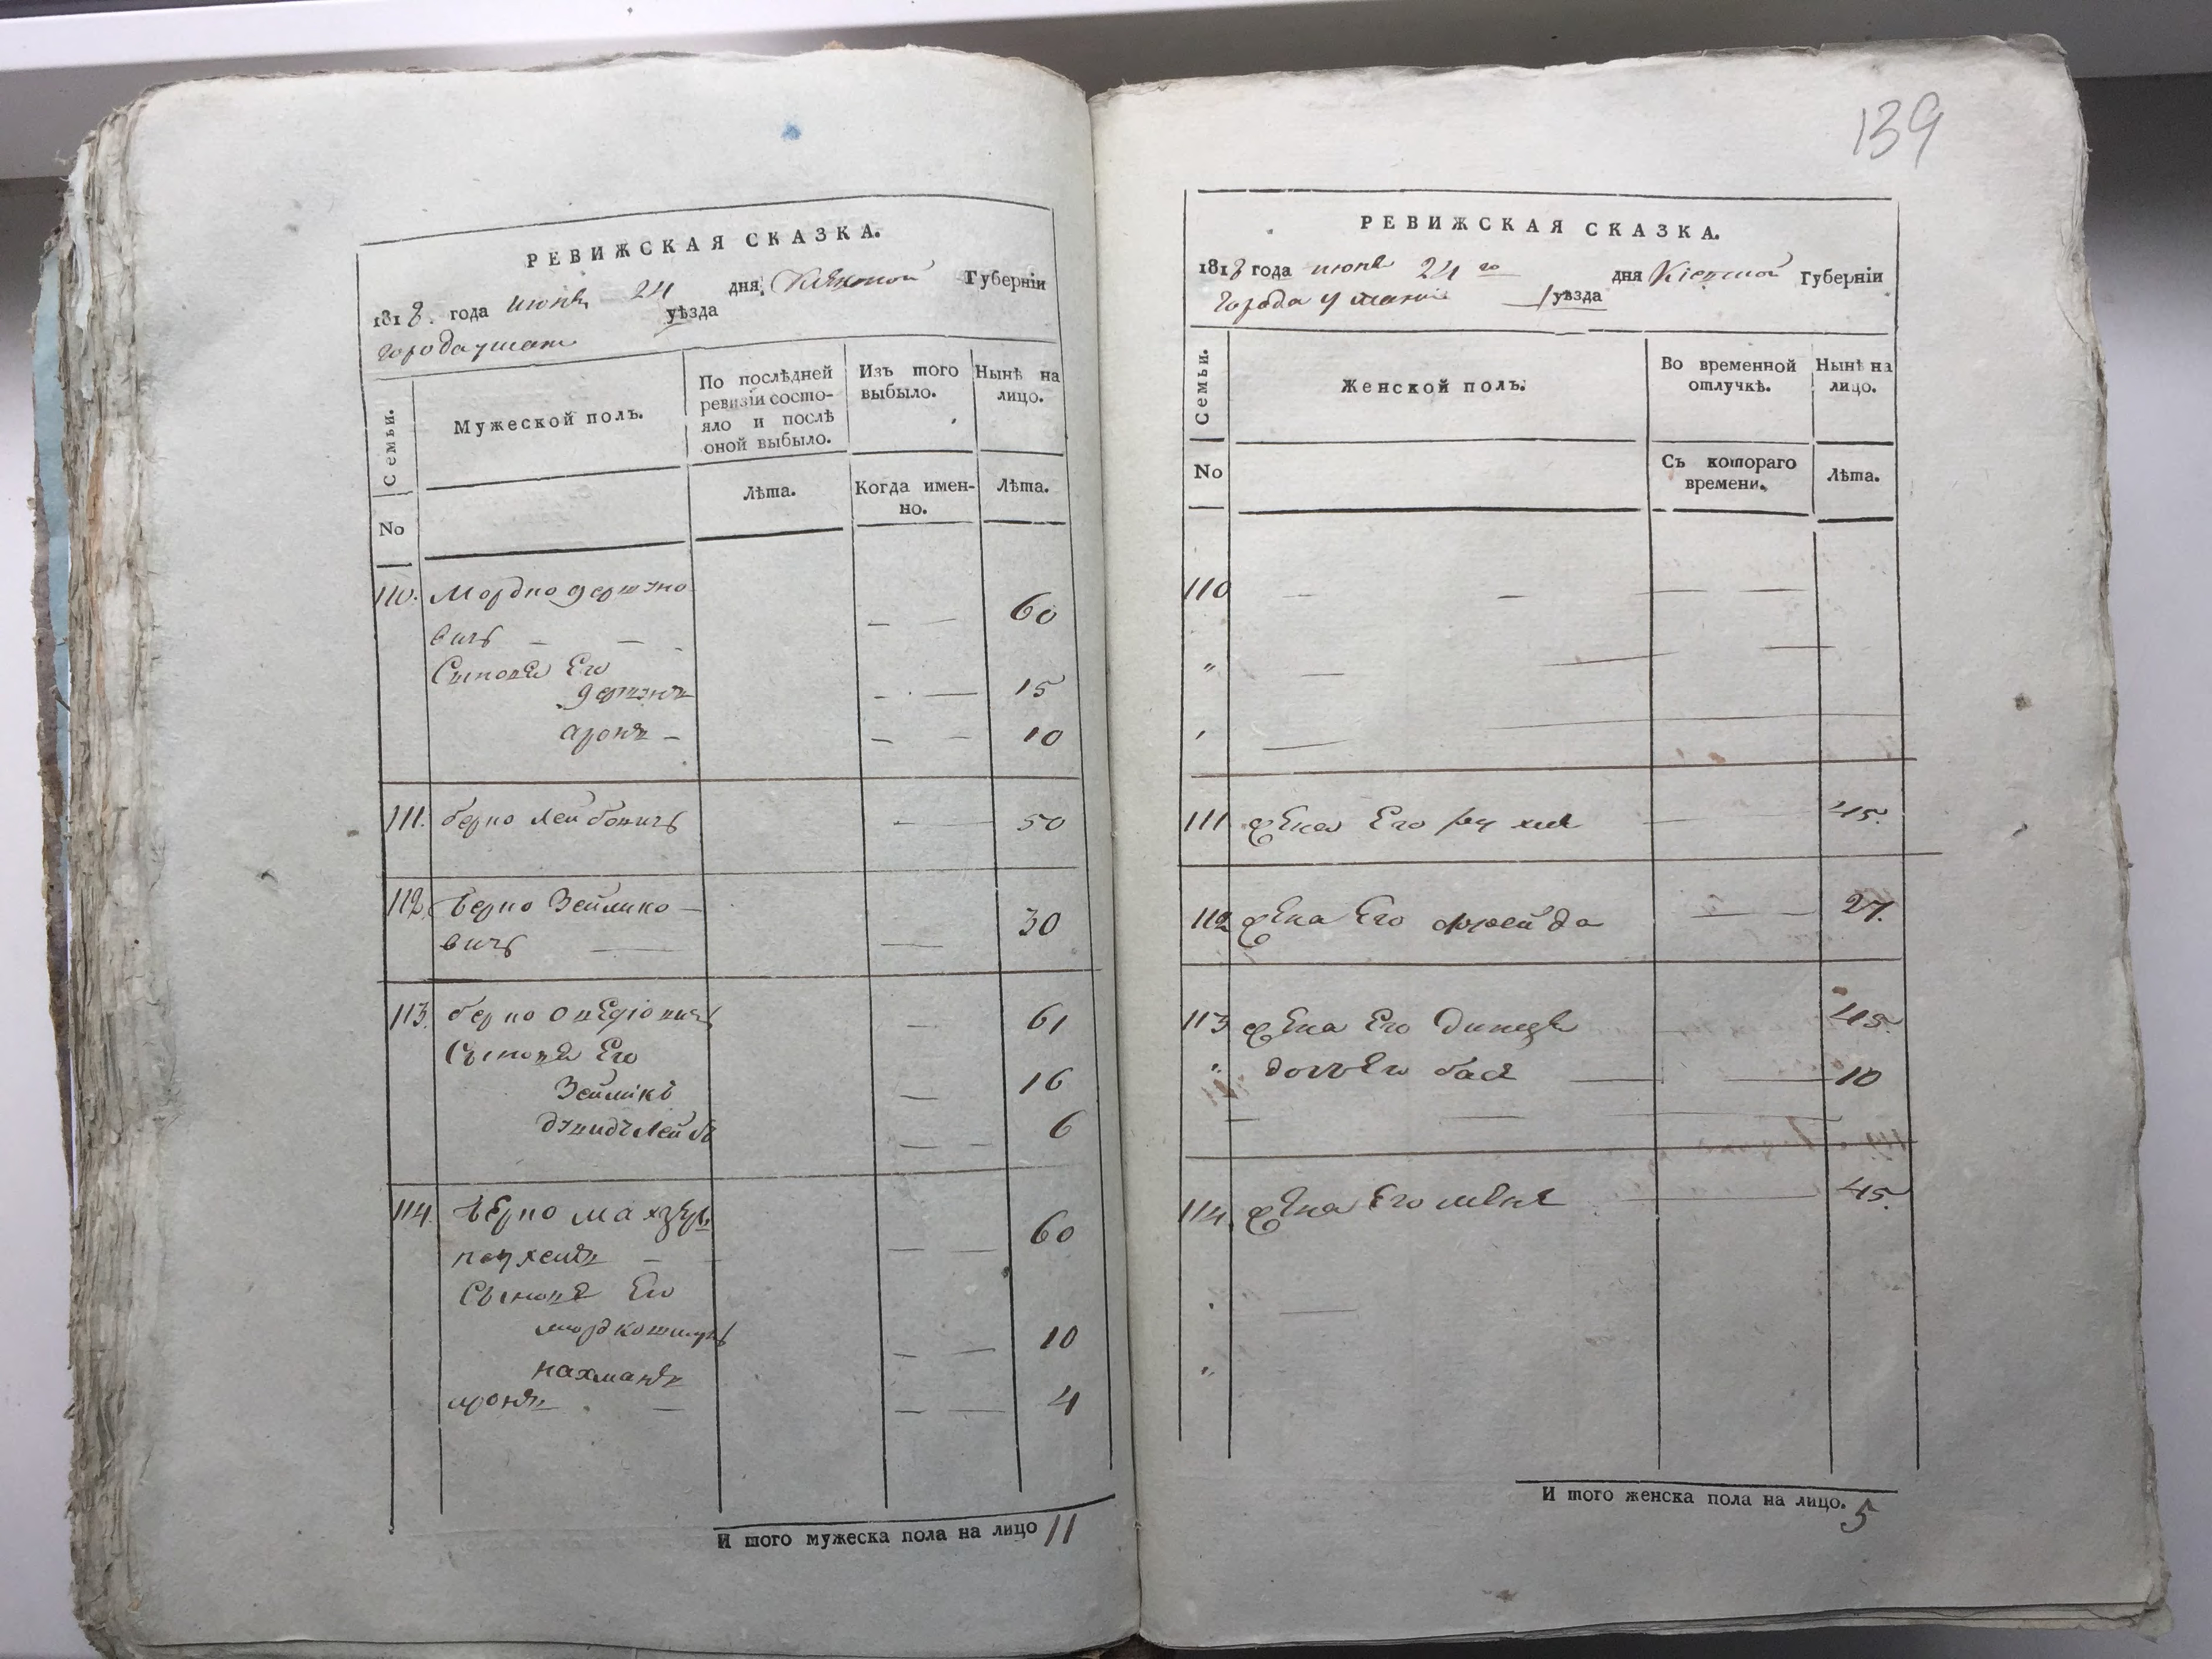 РЕВИЖСКАЯ СКАЗКА.
1818. года июня 24 дня Киевской Губернiи
города умани уѣзда
Семьи.
No
Мужеской полъ.
По послѣдней
ревизiи состо-
яло и послѣ
оной выбыло.
Лѣта.
Изъ того
выбыло.
Когда имен-
но.
Нынѣ на
лицо.
Лѣта.
110. Мордко
вичъ — — — — 60
Сыновя Его
— — 15
аронъ — — — 10
111. берко Лейбовичъ — — 50
112. Берко Зейлико —
вичъ — — 30
113. берко — 61
Сыновя Его
Зейликъ — 16
Лейбъ — — 6
114. Берко
— — — — 60
Сыновя Его
— — 10
нахманъ
аронъ — — — 4
И того мужеска пола на лицо 11
139
РЕВИЖСКАЯ СКАЗКА.
1818 года июня 24 го дня Кiевской Губернiи
Города Умани уѣзда
Семьи.
No
Женской полъ.
Во временной
отлучкѣ.
Съ котораго
времени.
Нынѣ на
лицо.
Лѣта.
110 — — — —
" — — —
" —
111 жена Его рухля — 45.
112 жена Его фрейда — — 27.
113 жена Его — 45.
" дочь Его бася — — 10
— — —
114. жена Его — 45.
" —
"
И того женска пола на лицо. 5